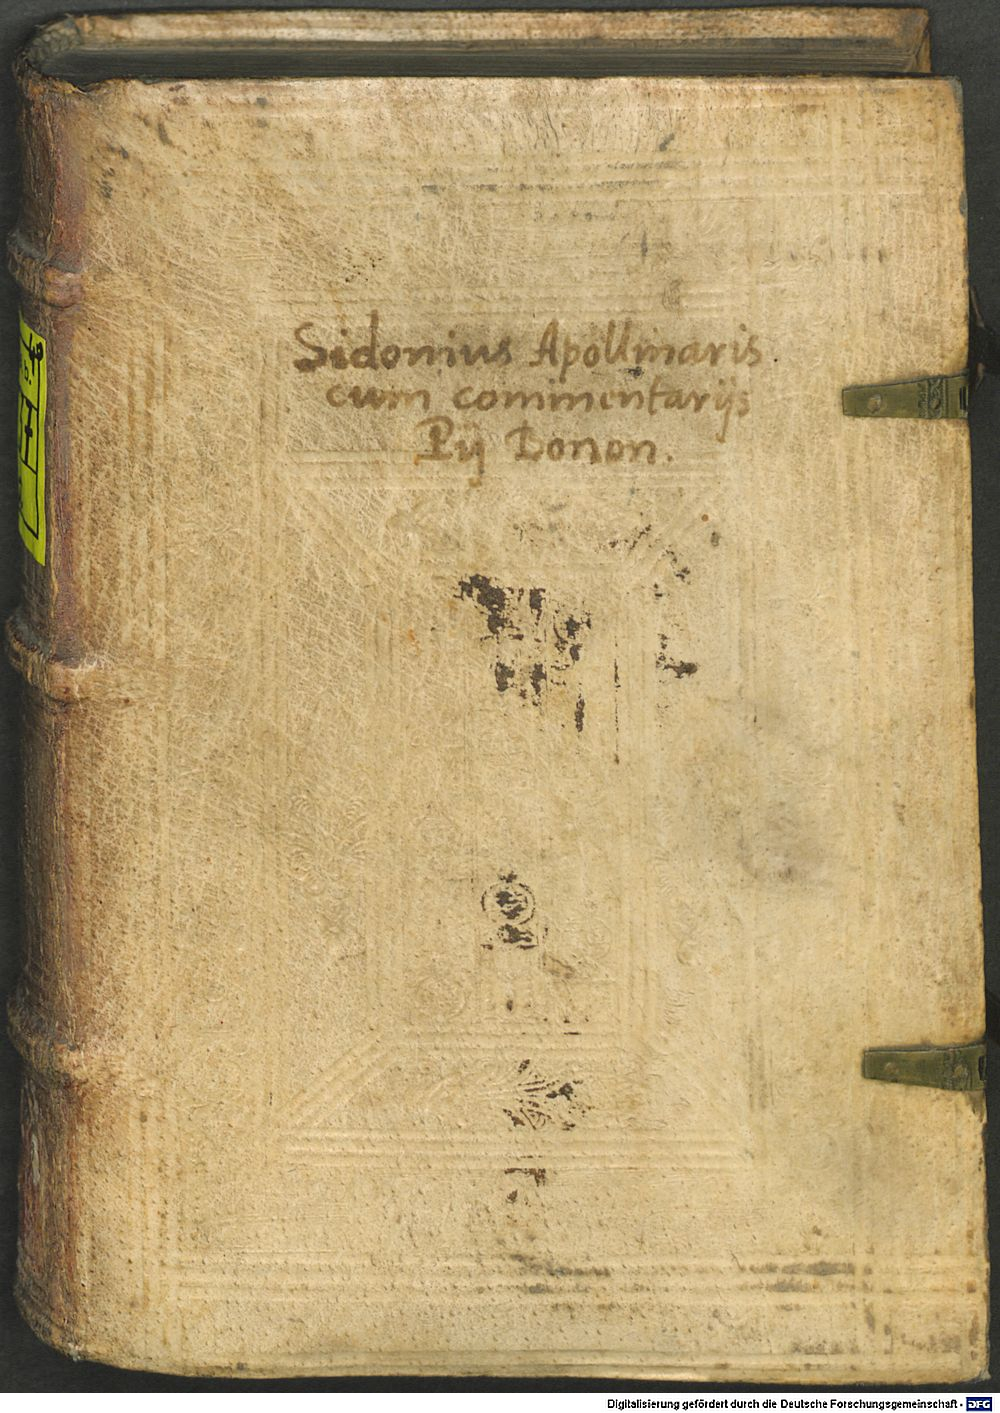 Sidonius Apollinaris
cum commentarijs
Pij Bonon.
Digitalisierung gefördert durch die Deutsche Forschungsgemeinschaft - DFG